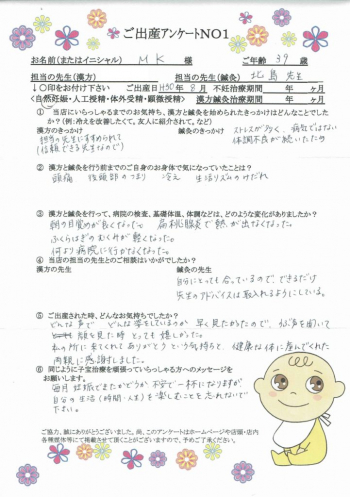 ご出産アンケートNO1
お名前(またはイニシャル) MK 様 ご年齢 39 歳
担当の先生(漢方) 担当の先生(鍼灸) 北島先生
↓○印をお付け下さい ご出産年月 H30年 8月 不妊治療期間 年 ヶ月
<自然妊娠・人工授精・体外受精・顕微授精> 漢方鍼灸治療期間 年 ヶ月
① 当店にいらっしゃるまでのお気持ち、漢方と鍼灸を始められたきっかけはどんなことでした
か?(例:冷えを改善したくて、友人に紹介されて、など)
漢方のきっかけ 鍼灸のきっかけ ストレスが多く、病気ではない
担当の先生にすすめられて 体調不良が続いたため
(信頼できる先生なので)
② 漢方と鍼灸を行う前までのご自身のお身体で気になっていたことは?
頭痛 後頭部のコリ 冷え 生理リズムのみだれ
③ 漢方と鍼灸を行って、病院の検査、基礎体温、体調などは、どのような変化がありましたか?
朝の目覚めが良くなった。扁桃腺炎で熱が出なくなった。
ふくらはぎのむくみが軽くなった。
何より病院に行かなくなった。
④ 当店の担当の先生とのご相談はいかがでしたか?
漢方の先生 鍼灸の先生
自分にとても合っているので、できるだけ
先生のアドバイスは取入れるようにしている。
⑤ ご出産された時、どんなお気持ちでしたか?
どんな声で どんな姿をしているのか 早く見たかったので、うぶ声を聞いて
顔を見た時 とっても嬉しかった。
私の所に来てくれてありがとうという気持ちと 健康な体に産んでくれた
両親に感謝しました。
⑥ 同じように子宝治療を頑張っていらっしゃる方へのメッセージを
お願いします。
毎月 妊娠できたかどうか 不安で一杯になりますが
自分の生活(時間・人生)を楽しむことを忘れないで
下さい。
ご協力、誠にありがとうございました。尚、このアンケートはホームページや店頭・店内
各種媒体等にて掲載させて頂くことがございますので、予めご了承ください。